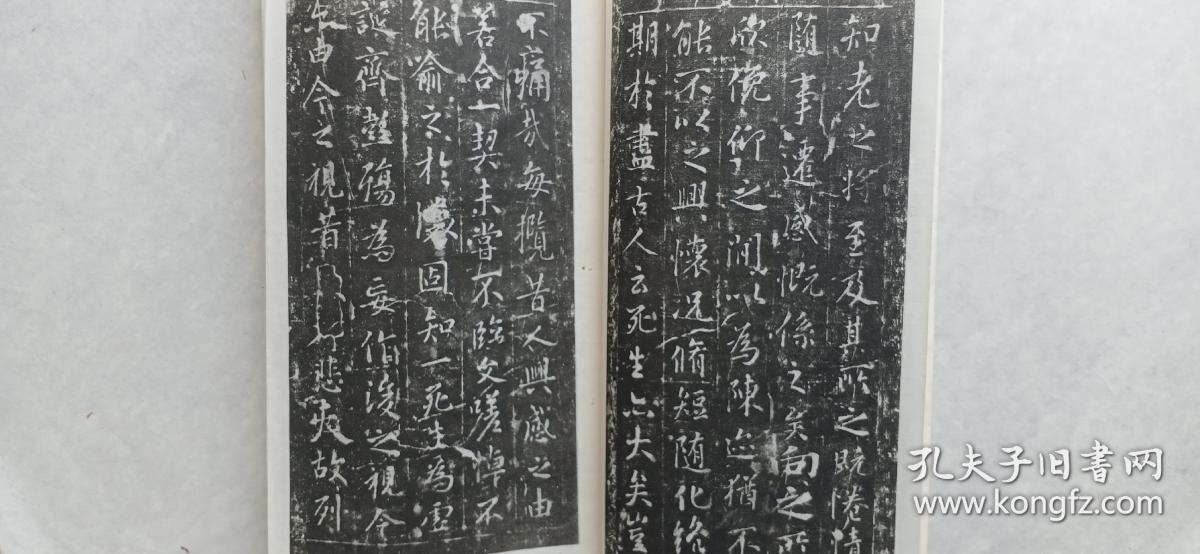 知老之將至及其所之既惓情
隨事遷感慨係之矣向之所
欣俛仰之間以為陳迹猶不
能不以之興懷況脩短隨化終
期於盡古人云死生亦大矣豈
不痛哉每攬昔人興感之由
若合一契未嘗不臨文嗟悼不
能喻之於懷固知一死生為虛
誕齊彭殤為妄作後之視今
亦由今之視昔 悲夫故列
孔夫子旧书网
www.kongfz.com